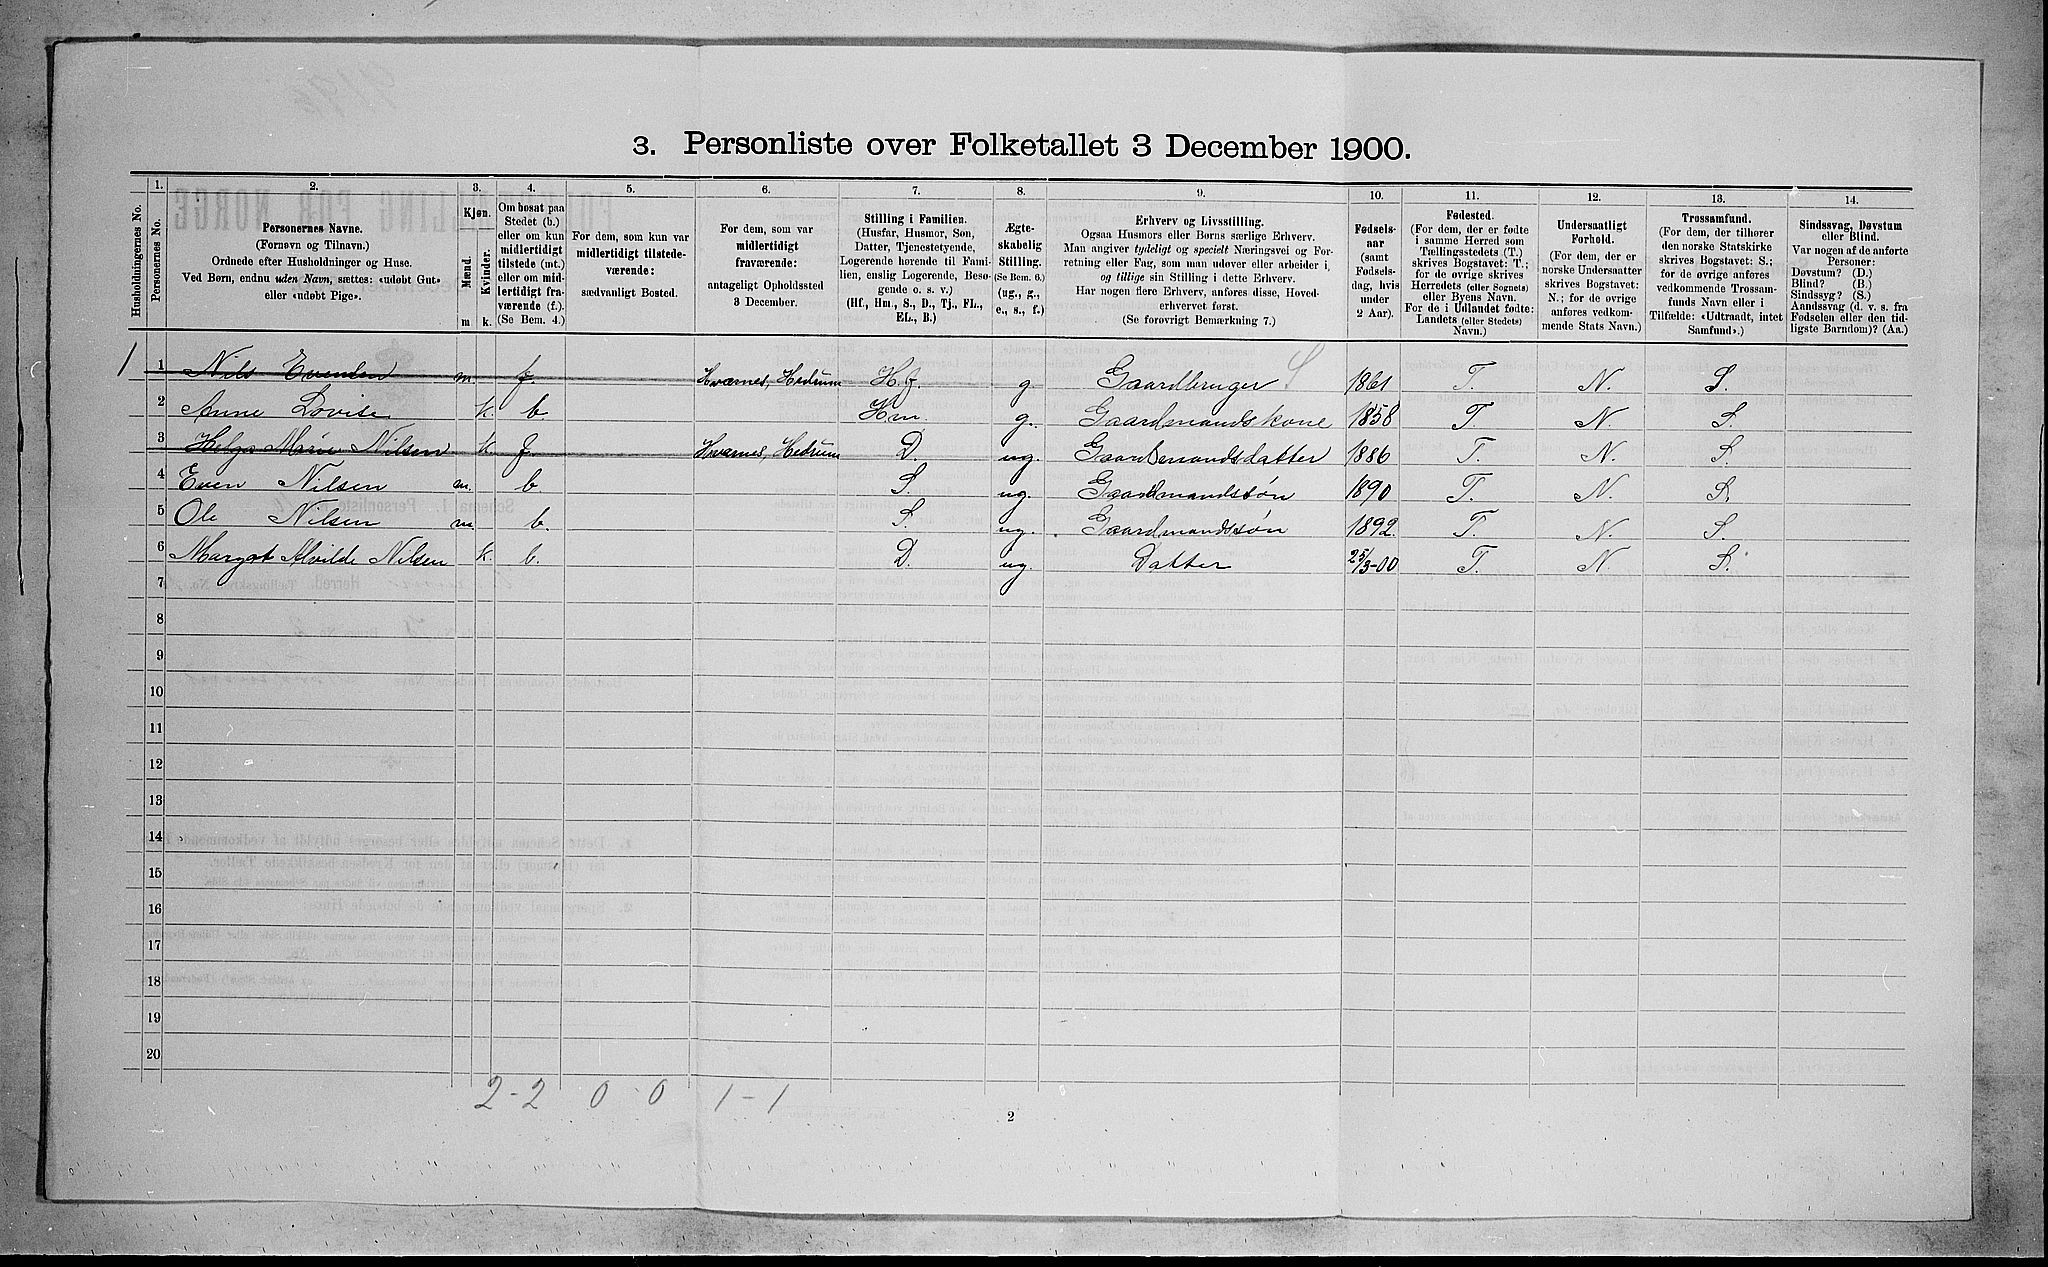 3. Personliste over Folketallet 3 December 1900.
Husholdningernes No.
1. Personernes No.
2. Personernes Navne. (Fornavn og Tilnavn.) Ordnede efter Husholdninger og Huse. Ved Børn, endnu uden Navn, sættes: «udøbt Gut» eller «udøbt Pige».
3. Kjøn. Mænd. m. Kvinder. k.
4. Om bosat paa Stedet (b.) eller om kun midlertidigt tilstede (mt.) eller om midlertidigt fraværende (f.). (Se Bem. 4.)
5. For dem, som kun var midlertidigt tilstedeværende: sædvanligt Bosted.
6. For dem, som var midlertidigt fraværende: antageligt Opholdssted 3 December.
7. Stilling i Familien. (Husfar, Husmor, Søn, Datter, Tjenestetyende, Logerende hørende til Familien, enslig Logerende, Besøgende o. s. v.) (Hf., Hm., S., D., Tj., FL., EL., B.)
8. Ægteskabelig Stilling. (Se Bem. 6.) (ug., g., e., s., f.)
9. Erhverv og Livsstilling. Ogsaa Husmors eller Børns særlige Erhverv. Man angiver tydeligt og specielt Næringsvei og Forretning eller Fag, som man udøver eller arbeider i, og tillige sin Stilling i dette Erhverv. Har nogen flere Erhverv, anføres disse, Hovederhvervet først. (Se forøvrigt Bemærkning 7.)
10. Fødselsaar (samt Fødselsdag, hvis under 2 Aar).
11. Fødested. (For dem, der er fødte i samme Herred som Tællingsstedets (T.) skrives Bogstavet: T.; for de øvrige skrives Herredets (eller Sognets) eller Byens Navn. For de i Udlandet fødte: Landets (eller Stedets) Navn.)
12. Undersaatligt Forhold. (For dem, der er norske Undersaatter skrives Bogstavet: N.; for de øvrige anføres vedkommende Stats Navn.)
13. Trossamfund. (For dem, der tilhører den norske Statskirke skrives Bogstavet: S.; for de øvrige anføres vedkommende Trossamfunds Navn eller i Tilfælde: «Udtraadt, intet Samfund».)
14. Sindssvag, Døvstum eller Blind. Var nogen af de anførte Personer: Døvstum? (D.) Blind? (B.) Sindssyg? (S.) Aandssvag (d. v. s. fra Fødselen eller den tidligste Barndom)? (Aa.)
1 1 Nils Evensen m. f. Hvarnes, Hedrum H.f g. Gaardbruger S 1861 T. N. S.
2 Anne Lovise k. b Hm. g. Gaardmandskone 1858 T. N. S.
3 Helga Marie Nilsen k. f. Hvarnes, Hedrum D. ug. Gaardmandsdatter 1886 T. N. S.
4 Even Nilsen m. b. S. ug. Gaardmandssøn 1890 T. N. S.
5 Ole Nilsen m. b. S. ug. Gaardmandssøn 1892. T. N. S.
6 Margot Alvilde Nilsen k. b. D. ug. Datter 25/3-00 T. N S.
7
8
9
10
11
12
13
14
15
16
17
18
19
20
2-2 0 - 0 1-1
2